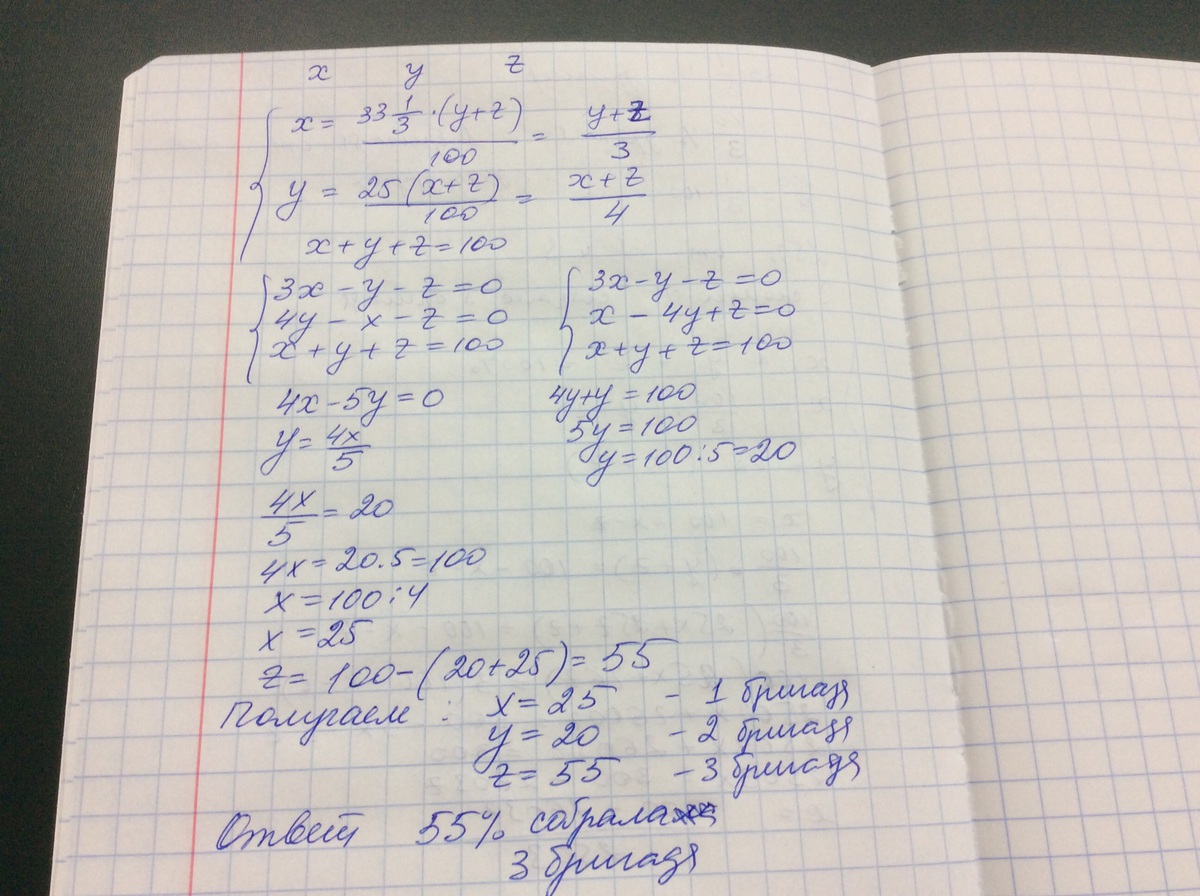 x y z
x = 33 1/3 · (y+z) / 100 = y+z / 3
y = 25 (x+z) / 100 = x+z / 4
x+y+z=100
3x-y-z=0 3x-y-z=0
4y-x-z=0 x-4y+z=0
x+y+z=100 x+y+z=100
4x-5y=0 4y+y=100
y=4x/5 5y=100
y=100:5=20
4x/5=20
4x=20.5=100
x=100:4
x=25
z=100-(20+25)=55
Получаем : x=25 - 1 бригада
y=20 - 2 бригада
z=55 - 3 бригада
Ответ 55% собрала
3 бригада